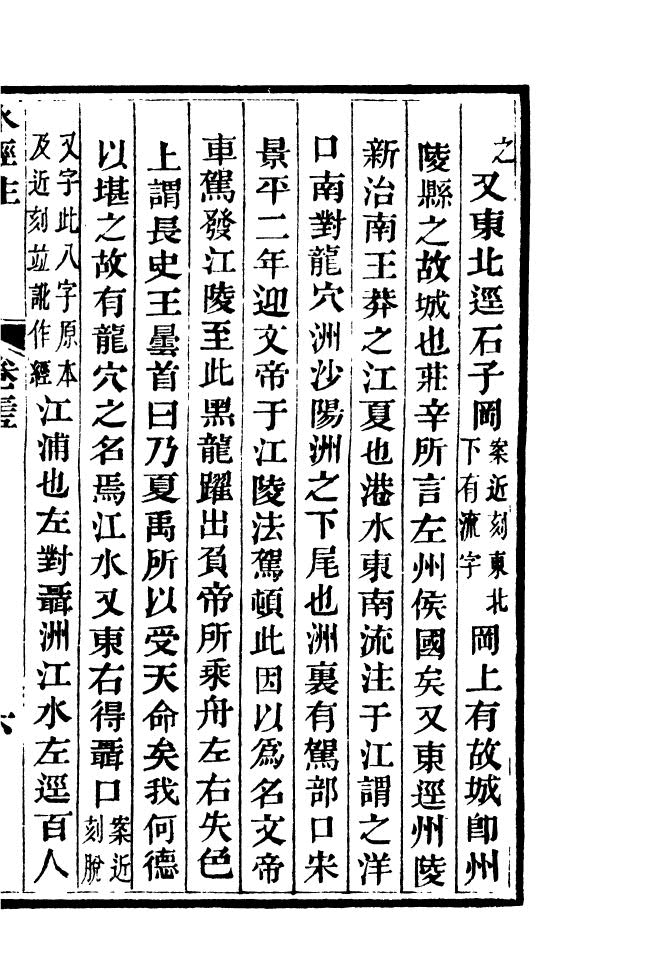 之又東北逕石子岡案近刻東北下有流字岡上有故城卽州
陵縣之故城也莊辛所言左州侯國矣又東逕州陵
新治南王莽之江夏也港水東南流注于江謂之洋
口南對龍穴洲沙陽洲之下尾也洲裏有駕部口宋
景平二年迎文帝于江陵法駕頓此因以爲名文帝
車駕發江陵至此黑龍躍出負帝所乘舟左右失色
上謂長史王曇首曰乃夏禹所以受天命矣我何德
以堪之故有龍穴之名焉江水又東右得聶口案近刻脫
又字此八字原本及近刻竝訛作經江浦也左對聶洲江水左逕百人
水經注